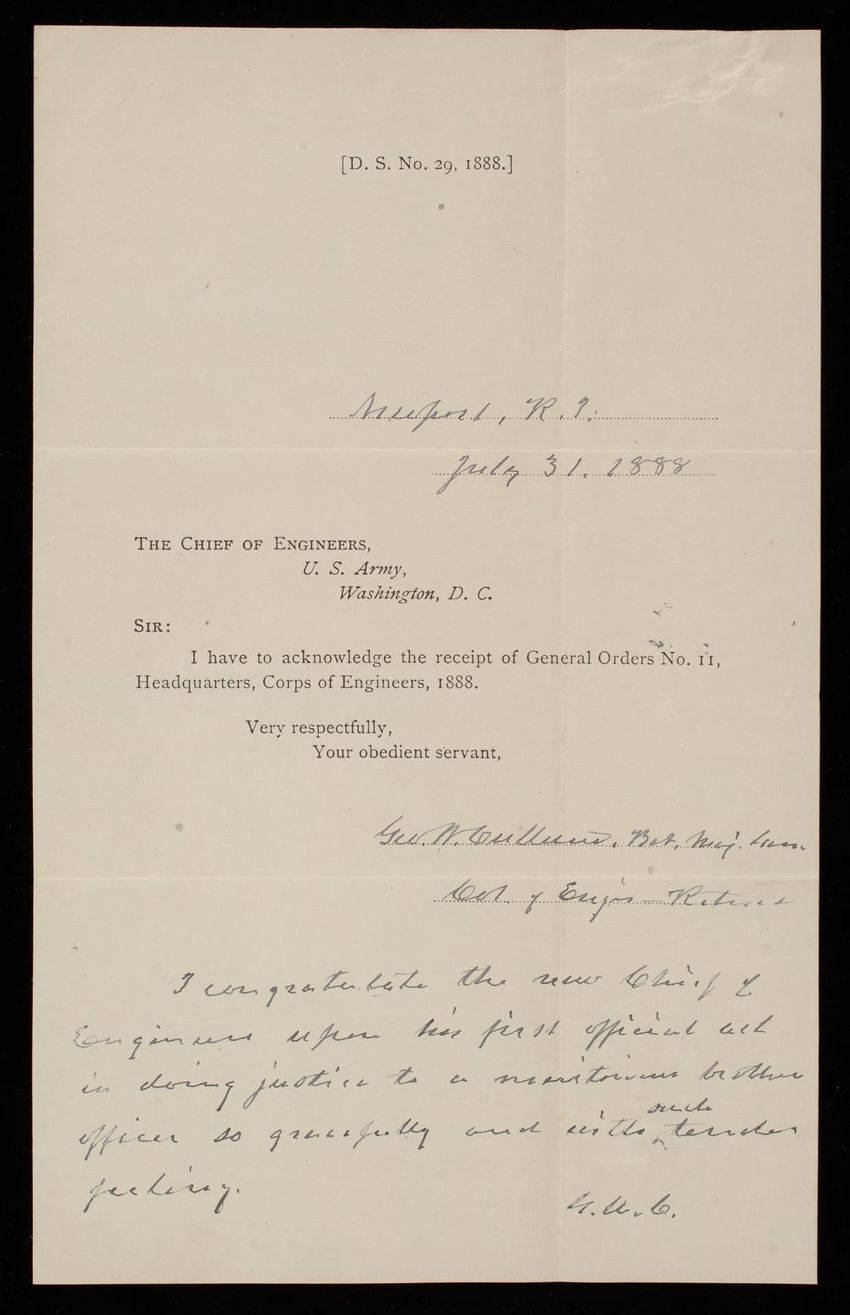 [D. S. No. 29, 1888.]
Newport, R.I.
July 31, 1888
THE CHIEF OF ENGINEERS,
U. S. Army,
Washington, D. C.
SIR:
I have to acknowledge the receipt of General Orders No. 11,
Headquarters, Corps of Engineers, 1888.
Very respectfully,
Your obedient servant,
Geo. W. Cullum, Bvt. Maj. Gen.
Col. of Eng'rs Retired
I congratulate the new Chief of
Engineers upon his first official act
in doing justice to a meritorious brother
officer so gracefully and with such tender
feeling.
G.W.C.